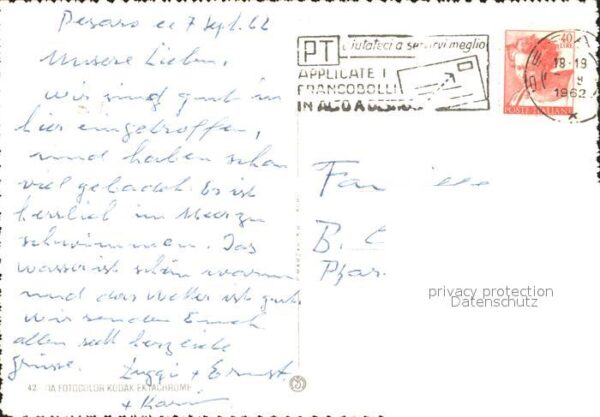 Pesaro 7 Sept. 62
Unsere Lieben,
wir sind gut in
hier eingetroffen,
und haben schon
viel gebadet. Es ist
herrlich im Meer zu
schwimmen. Das
Wasser ist schön warm
und das Wetter ist gut.
Wir senden Euch
allen herzliche
Grüsse.
+ Ernst
+ Karin
42 FOTOCOLOR KODAK EKTACHROME
PT aiutateci a servirvi meglio
APPLICATE I
FRANCOBOLLI
IN ALTO A DESTRA
40
LIRE
POSTE ITALIANE
18-19
1962
Fam
B.
Pfar
privacy protection
Datenschutz